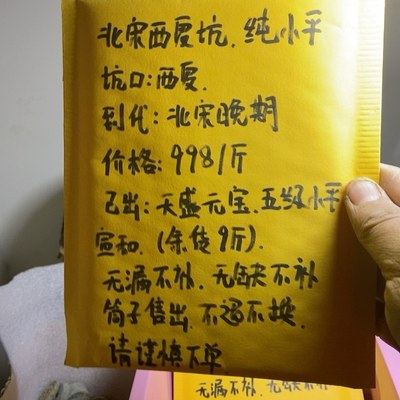 北宋西夏坑.纯小平
坑口:西夏.
到代:北宋晚期
价格:998/斤
已出:天盛元宝.五级小平
宣和.(余货9斤).
无漏不补.无缺不补
筒子售出.不退不换.
请谨慎下单.
无漏不补.无缺不补